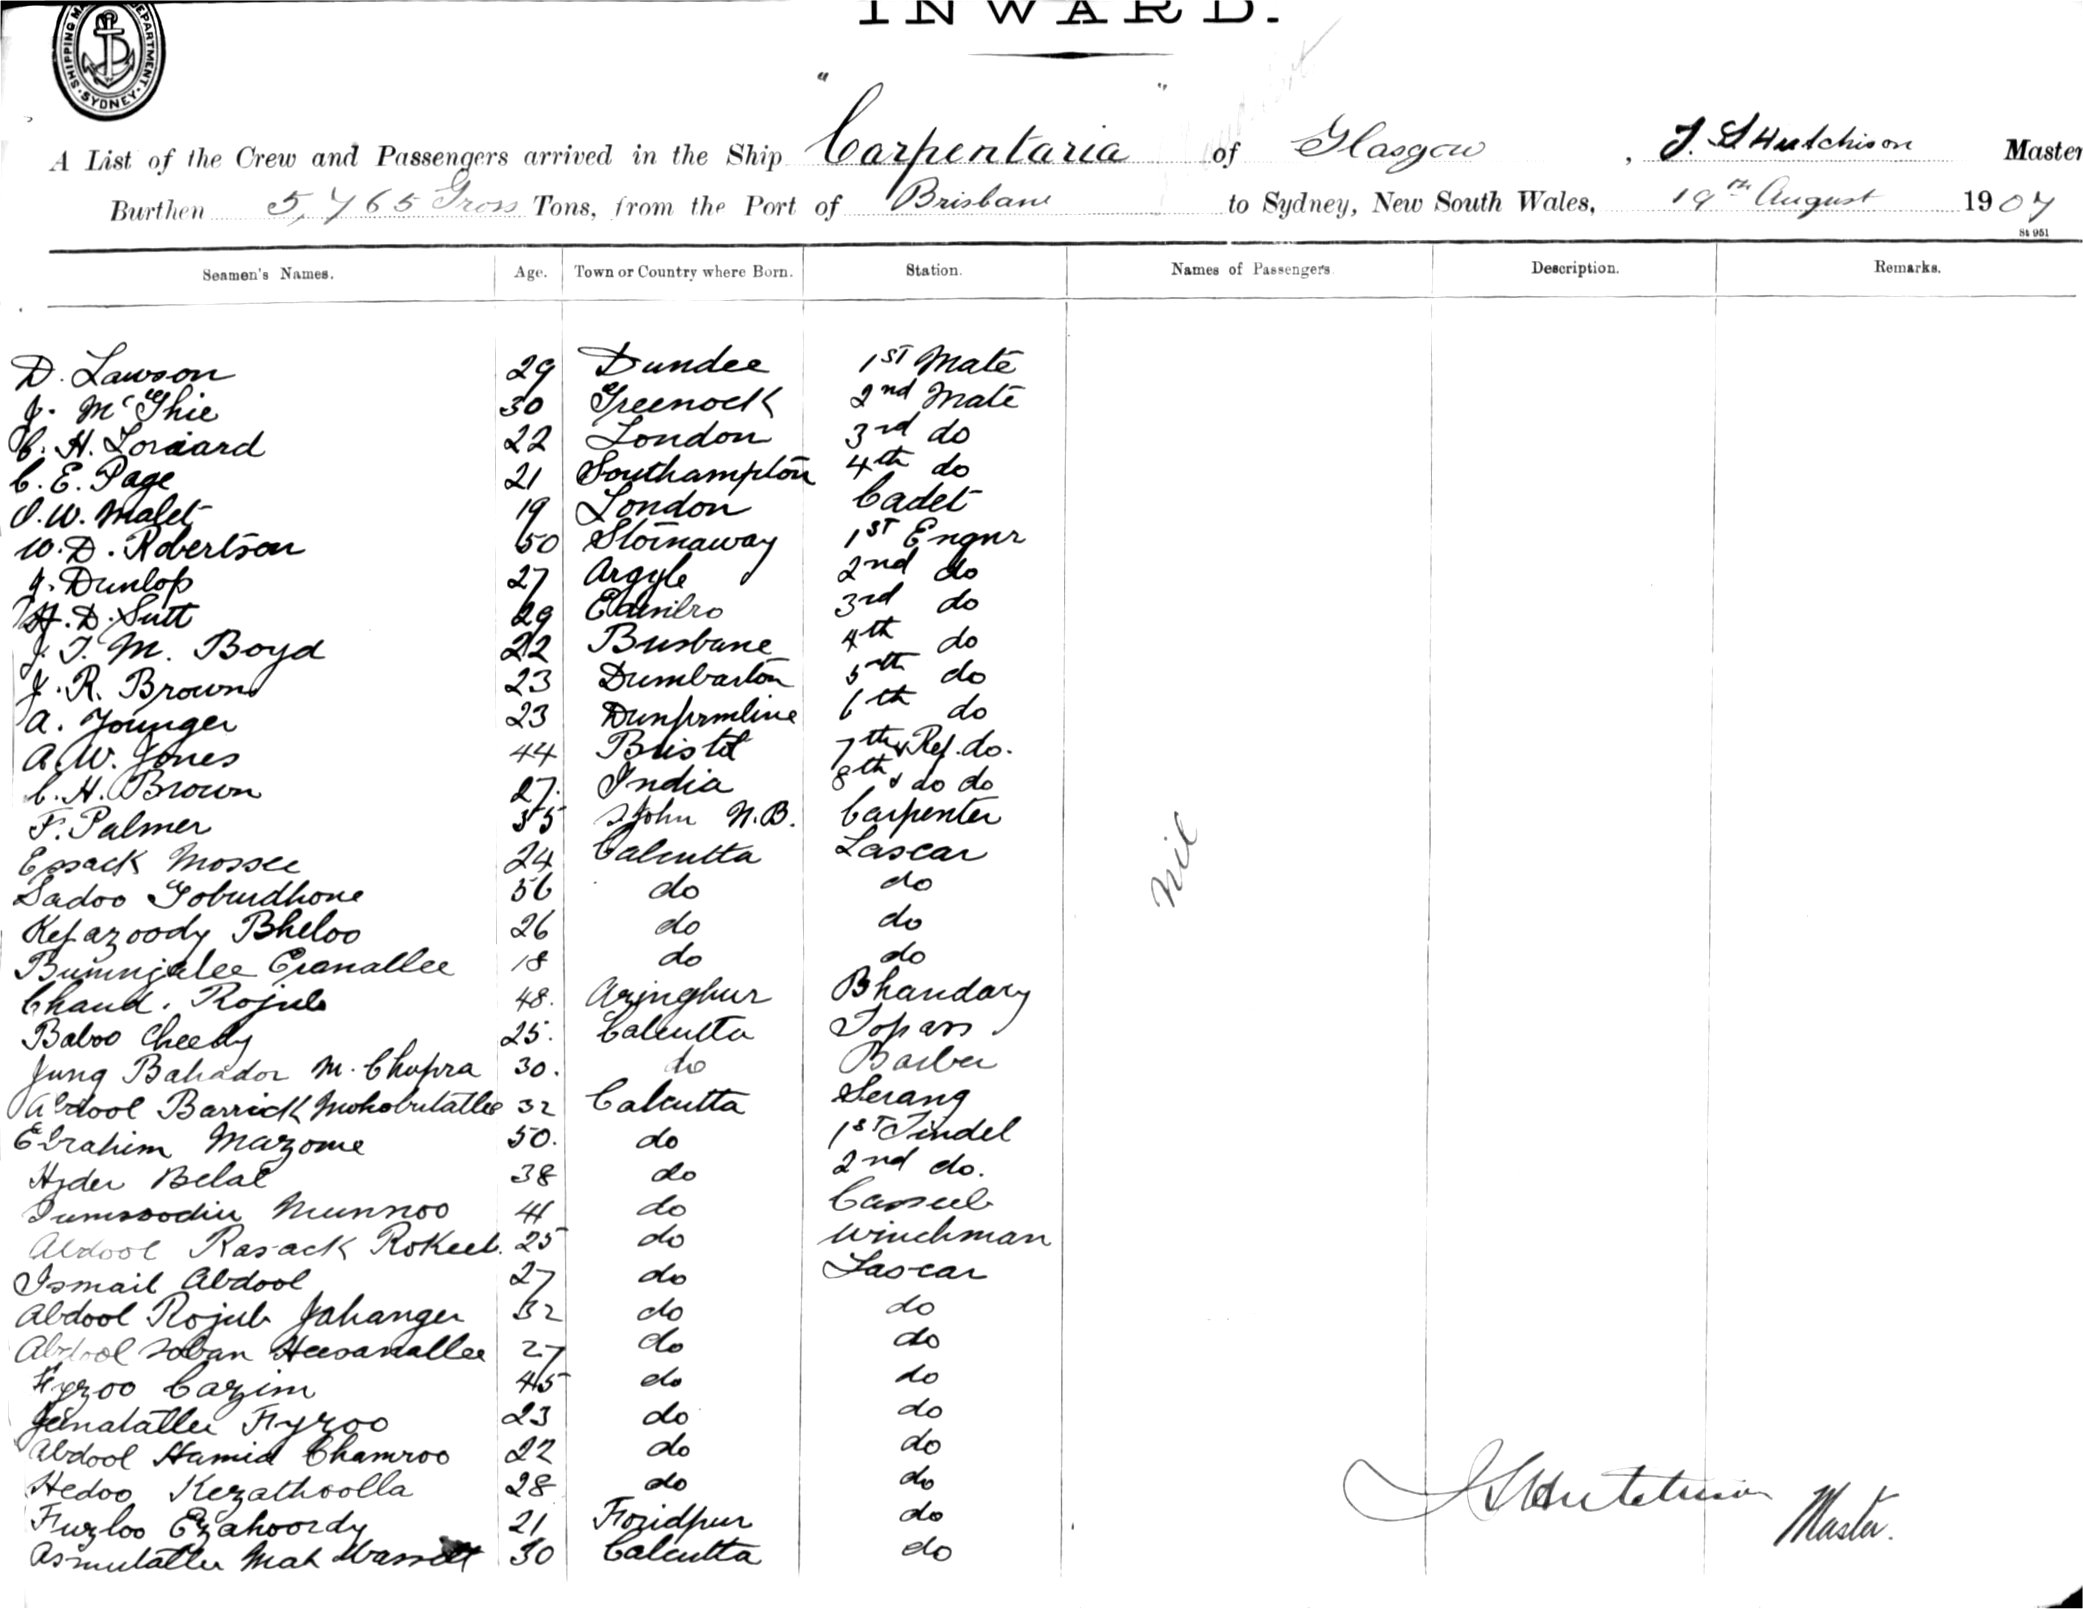 INWARD.
SHIPPING MA DEPARTMENT. SYDNEY.
A List of the Crew and Passengers arrived in the Ship "Carpentaria" of Glasgow, J. S Hutchison Master
Burthen 5,765 Gross Tons, from the Port of Brisbane to Sydney, New South Wales, 19th August 1907
St 951
Seamen's Names. Age. Town or Country where Born. Station. Names of Passengers Description. Remarks.
D. Lawson 29 Dundee 1ST Mate
J. McGhie 30 Greenock 2nd Mate
C. H. Loraard 22 London 3rd do
C. E. Page 21 Southampton 4th do
O. W. Malet 19 London Cadet
W. D. Robertson 50 Stornaway 1ST Engnr
J. Dunlop 27 Argyle 2nd do
H. D. Sutt 29 Edinbro 3rd do
J. T. M. Boyd 22 Brisbane 4th do
J. R. Brown 23 Dumbarton 5th do
A. Younger 23 Dunfrmline 6th do
A. W. Jones 44 Bristol 7th & Ref. do.
C. H. Brown 27. India 8th & do do
F. Palmer 35 St John N.B. Carpenter
Essack Mossee 24 Calcutta Lascar
Sadoo Goburdhone 56 do do
Kefazoody Bheloo 26 do do
Bumnjalee Eranallee 18 do do
Chand. Rojub 48. Azinghur Bhandary
Baboo Cheedy 25. Calcutta Topass
Jung Bahador M. Chopra 30. do Barber
Abdool Barrick Mohobutallee 32 Calcutta Serang
Ebrahim Mazome 50. do 1ST Tindel
Hyder Belal 38 do 2nd do.
Jumsoodin Munnoo 41 do Cassub
Abdool Rasack Rokeeb. 25 do Winchman
Ismail Abdool 27 do Lascar
Abdool Rojub Jahanger 32 do do
Abdool Soban Hosanallee 27 do do
Fyzoo Cazim 45 do do
Jeenatallee Fyzoo 23 do do
Abdool Hamid Chamroo 22 do do
Hedoo Kezathoolla 28 do do
Fuzloo Ezahoordy 21 Foridpur do
Asmutallee Mah 30 Calcutta do
Nil
J S Hutchison Master.